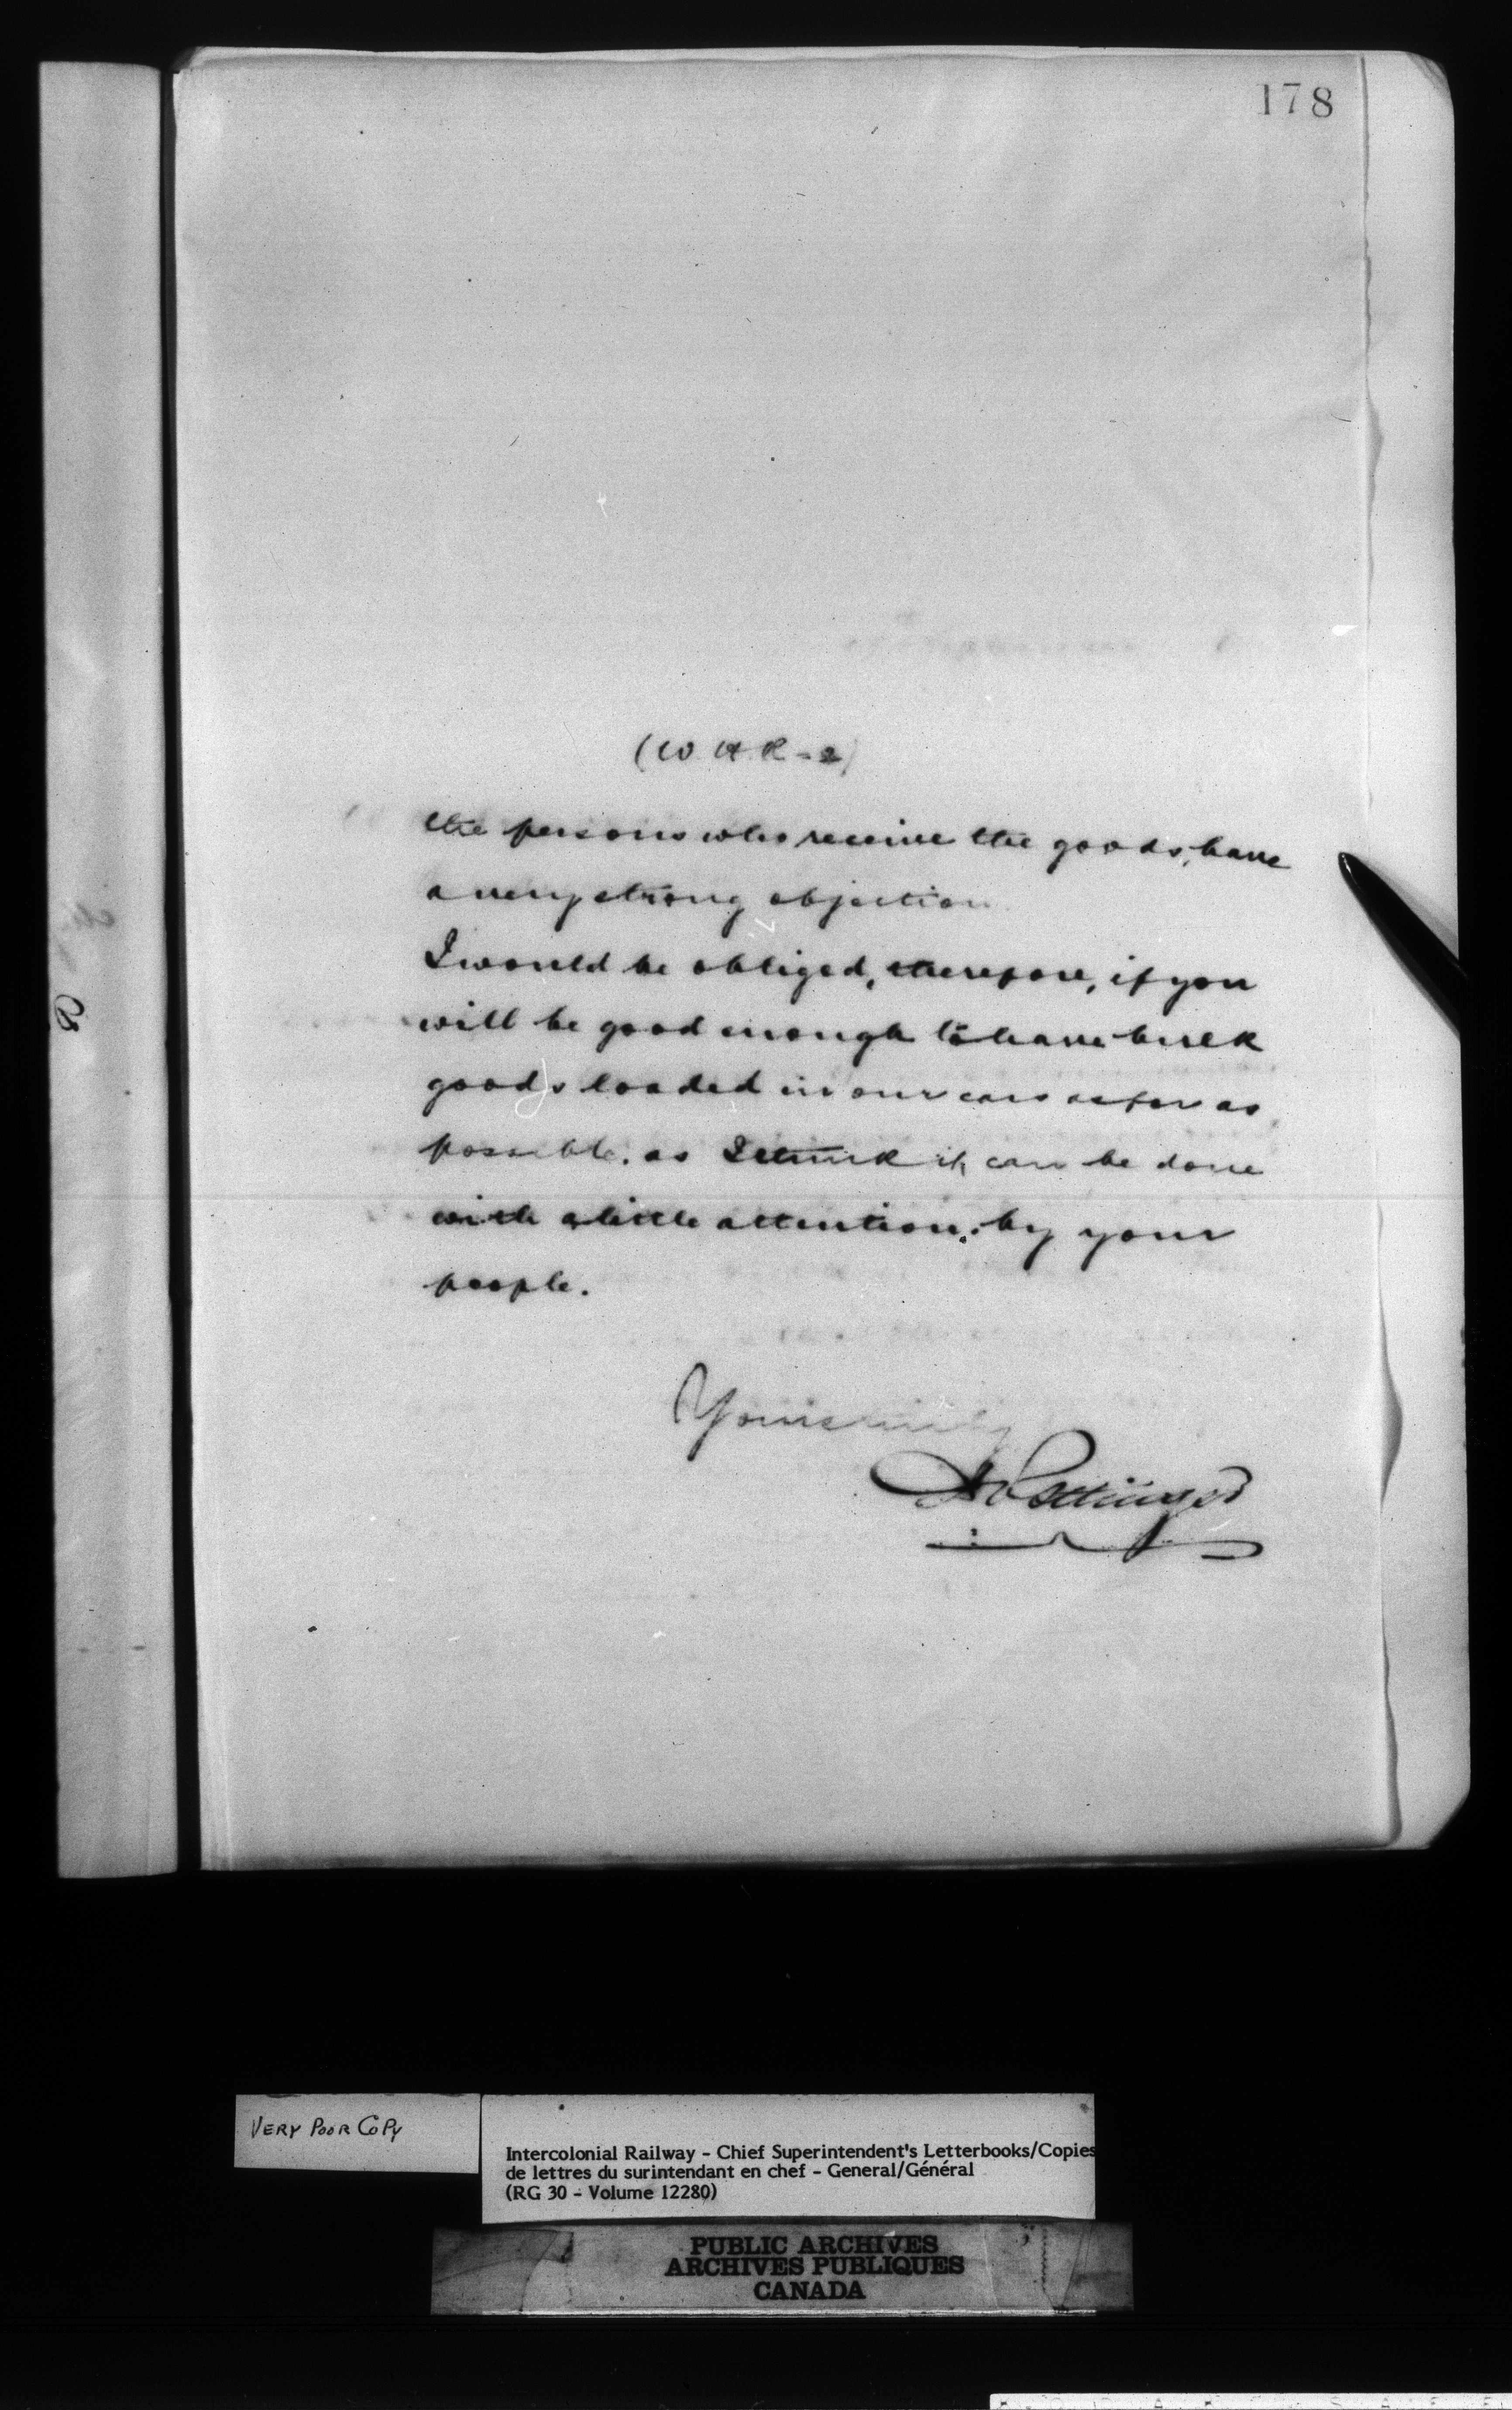 178
(W H R - 2)
the persons who receive the goods, have
a very strong objection.
I would be obliged, therefore, if you
will be good enough to have bulk
goods loaded in our cars as far as
possible, as I think it can be done
with a little attention by your
people.
Yours truly
D Pottinger
VERY POOR COPY
Intercolonial Railway - Chief Superintendent's Letterbooks/Copies
de lettres du surintendant en chef - General/Général
(RG 30 - Volume 12280)
PUBLIC ARCHIVES
ARCHIVES PUBLIQUES
CANADA